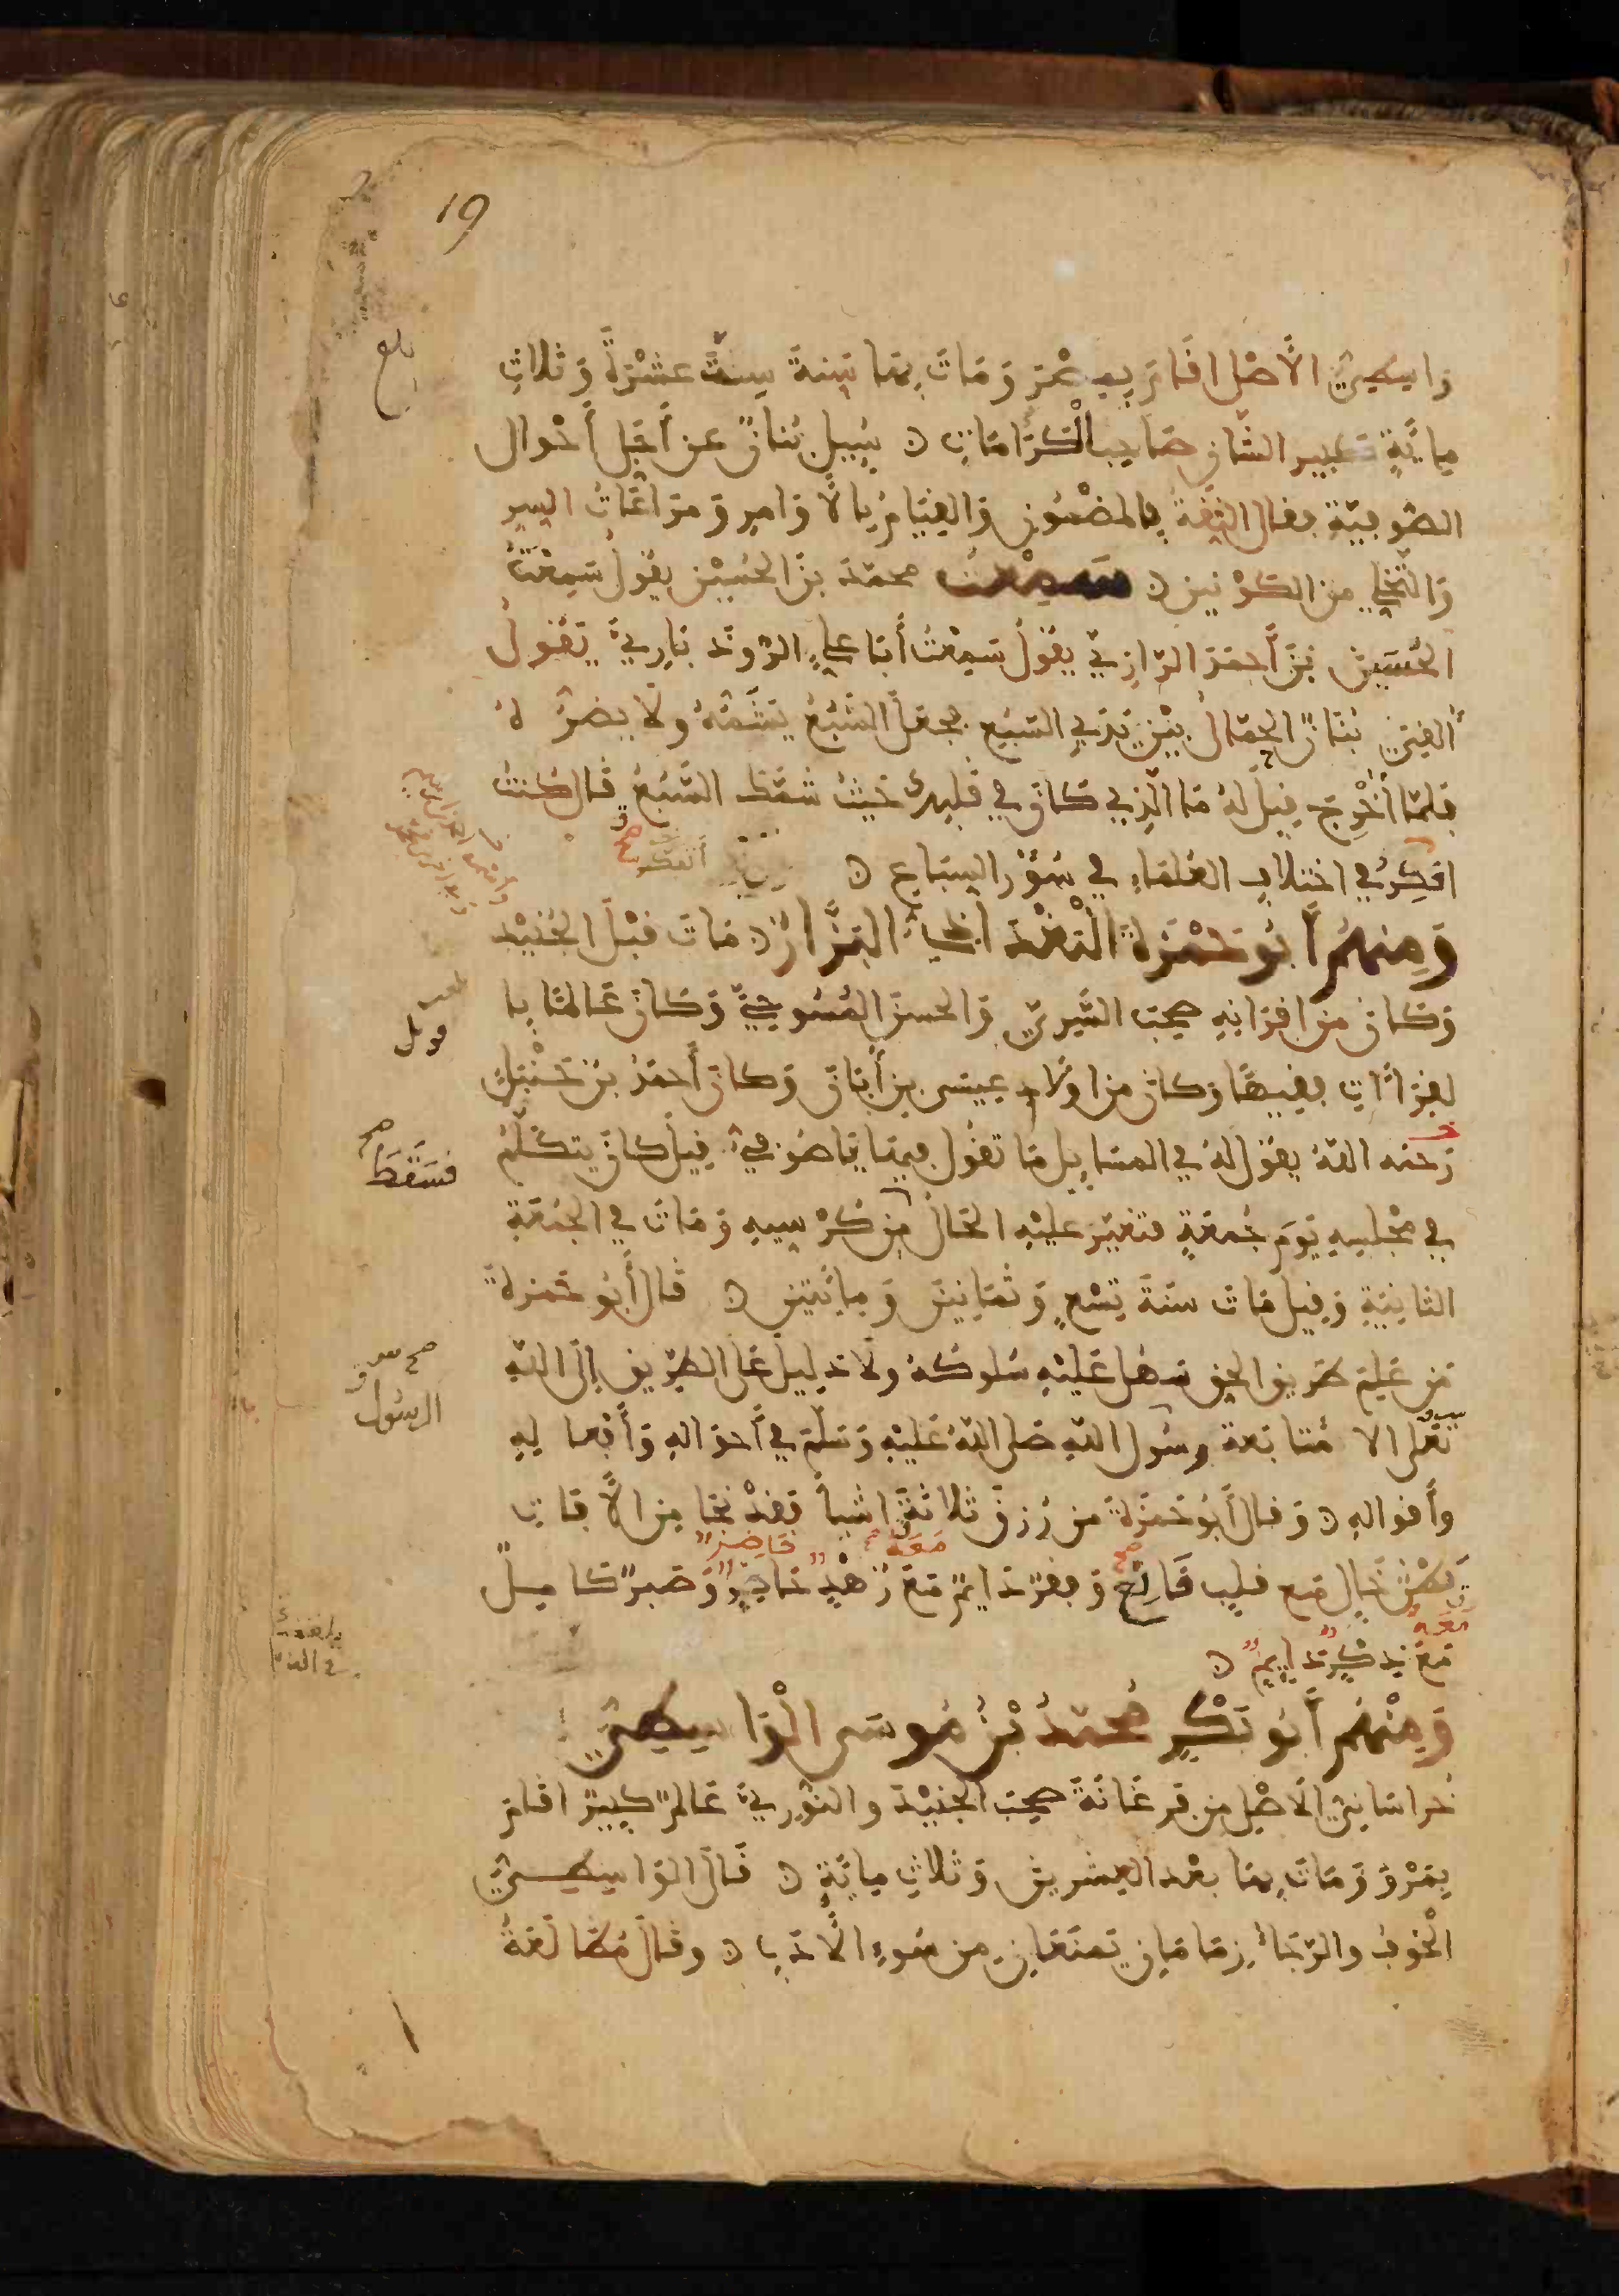 19
بلغ
واسطيُّ الأصل اقام بمصر ومات بها سنةَ ستَّ عشْرةَ وثلاث
مائةٍ كبير الشان صاحب الكرامات ن سُئِل بُنانٌ عن أجَلِّ أحْوال
الصُّوفيّة فقال الثِّقَةُ بالمضْمُونِ والقيامُ بالأوامر ومراعاتُ السر
والتَّخلي من الكوْنين ن سَمِعْتُ محمدَ بنَ الحُسَيْن يقول سَمِعْتُ
الحُسَيْن بْنَ أحمدَ الرّازيَّ يقول سَمِعْتُ أبا عليٍ الرُّوذَباريَّ يَقُول
ألقِيَ بُنَانٌ الجمّالُ بيْن يَدَيِ السَّبُع فجعل السَّبُعُ يَشَمُّهُ ولا يضرُّ لهُ
فلمّا أُخْرِج قيل لهُ ما الَّذي كان في قلبك حَيْثُ شمّك السَّبُعُ قال كنتُ
افكِرُ في اختلاف العُلمَاءِ في سُؤْرِ السِبَاع ن
أتفكر صح
وَمِنْهُم أبُو حَمْزةَ البَغْدادِيُّ البَزَّازُ ن مَاتَ قبْل الجُنَيْد
وَكان من اقرانِهِ صحِب السَّريَّ والحسنَ المُسُوحيَّ وكان عالمًا با
لقراءات فقيهًا وكان من اولاد عيسى بن أبَان وكان أحمدُ بن حَنْبل
رحمه اللهُ يقول لهُ في المسايل ما تقُول فيها يا صُوفيُّ قيل كان يتكلّمُ
في مجْلسِهِ يَوْمَ جُمعَةٍ فتغيّر عليْهِ الحالُ من كُرْسيهِ ومات في الجُمعَةِ
فسَقَطَ صح
الثانِيَةِ وقيل مات سنةَ تِسْعٍ وثمانِينَ ومائتين ن قال أبُو حمزةَ
من عَلِم طريق الحق سَهُل عَليْهِ سُلوكهُ ولا دليل على الطَّريق إلى اللهِ
تعلى الا مُتابَعة رسُول اللهِ صلى اللهُ عَليْهِ وَسَلّم في أحوَالهِ وأفعالهِ
الرسُول
وأقوالهِ ن وقال أبُو حمْزةَ من رُزق ثلاثَةَ اشيآء فقدْ نجا من الآفات
بَطْنٌ خالٍ مع قلبٍ قانِعٍ وفقرٌ دايمٌ معَ زُهْدٍ حاضِرٍ وَصَبْرٌ كاملٌ
مَعَهُ حَاضِرٌ
معَ ذِكْرٍ دايمٍ ن
مَعَه
وَمِنْهُم أَبُو بَكْرٍ مُحمّدُ بْنُ مُوسَى الْوَاسِطيُّ
خُراسَانيُّ الأصْل من فَرغَانَةَ صحِب الجُنَيْدَ والنُّوريَّ عَالمٌ كبيرٌ اقام
بِمَرْوَ وَمَاتَ بها بعْد العِشرين وثلاث مايَةٍ ن قال الوَاسِطيُّ
الْخَوْفُ والرَّجَاءُ زمَامَانِ يَمنَعَانِ من سُوءِ الأدَبِ ن وقال مُطَالَعَةُ